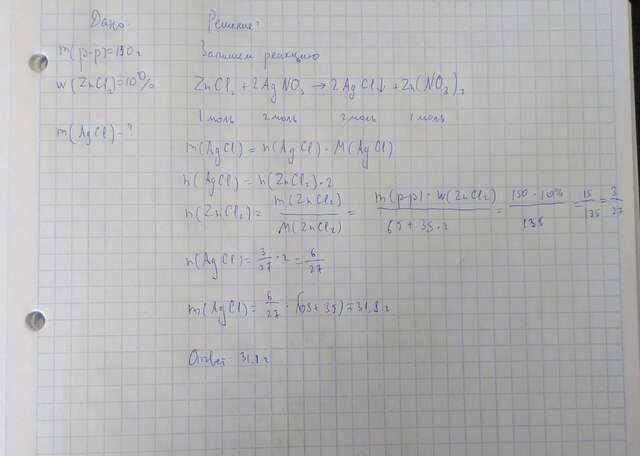 Дано: Решение:
m(р-р)=150г Запишем реакцию
w(ZnCl₂)=10% ZnCl₂ + 2AgNO₃ → 2AgCl↓ + Zn(NO₃)₂
1моль 2моль 2моль 1моль
m(AgCl)-? m(AgCl) = n(AgCl) · M(AgCl)
n(AgCl) = n(ZnCl₂)·2
n(ZnCl₂) = m(ZnCl₂)/M(ZnCl₂) = m(р-р)·w(ZnCl₂)/65+35·2 = 150·10%/135 = 15/135 = 3/27
n(AgCl) = 3/27 · 2 = 6/27
m(AgCl) = 6/27 · (108+35) = 31,8 г
Ответ: 31,8 г